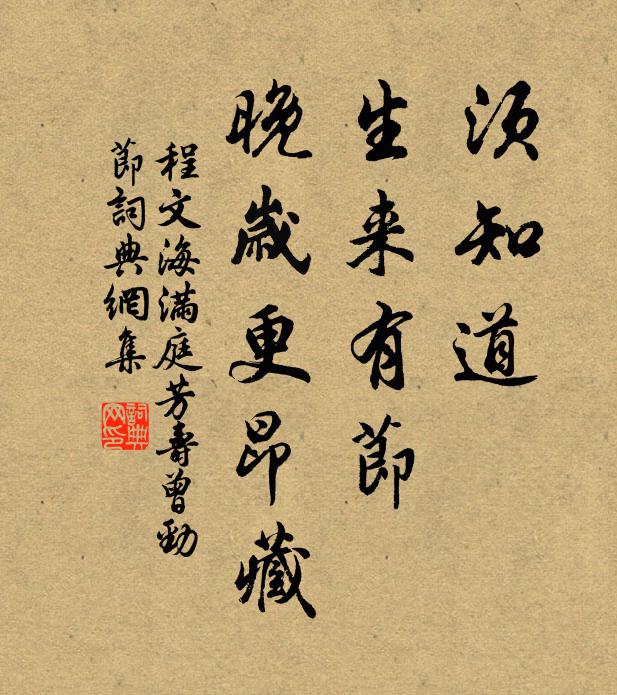 须知道
生来有節
晚歲更昂藏
程文海滿庭芳壽曾勁
節詞典網集
詞典网印